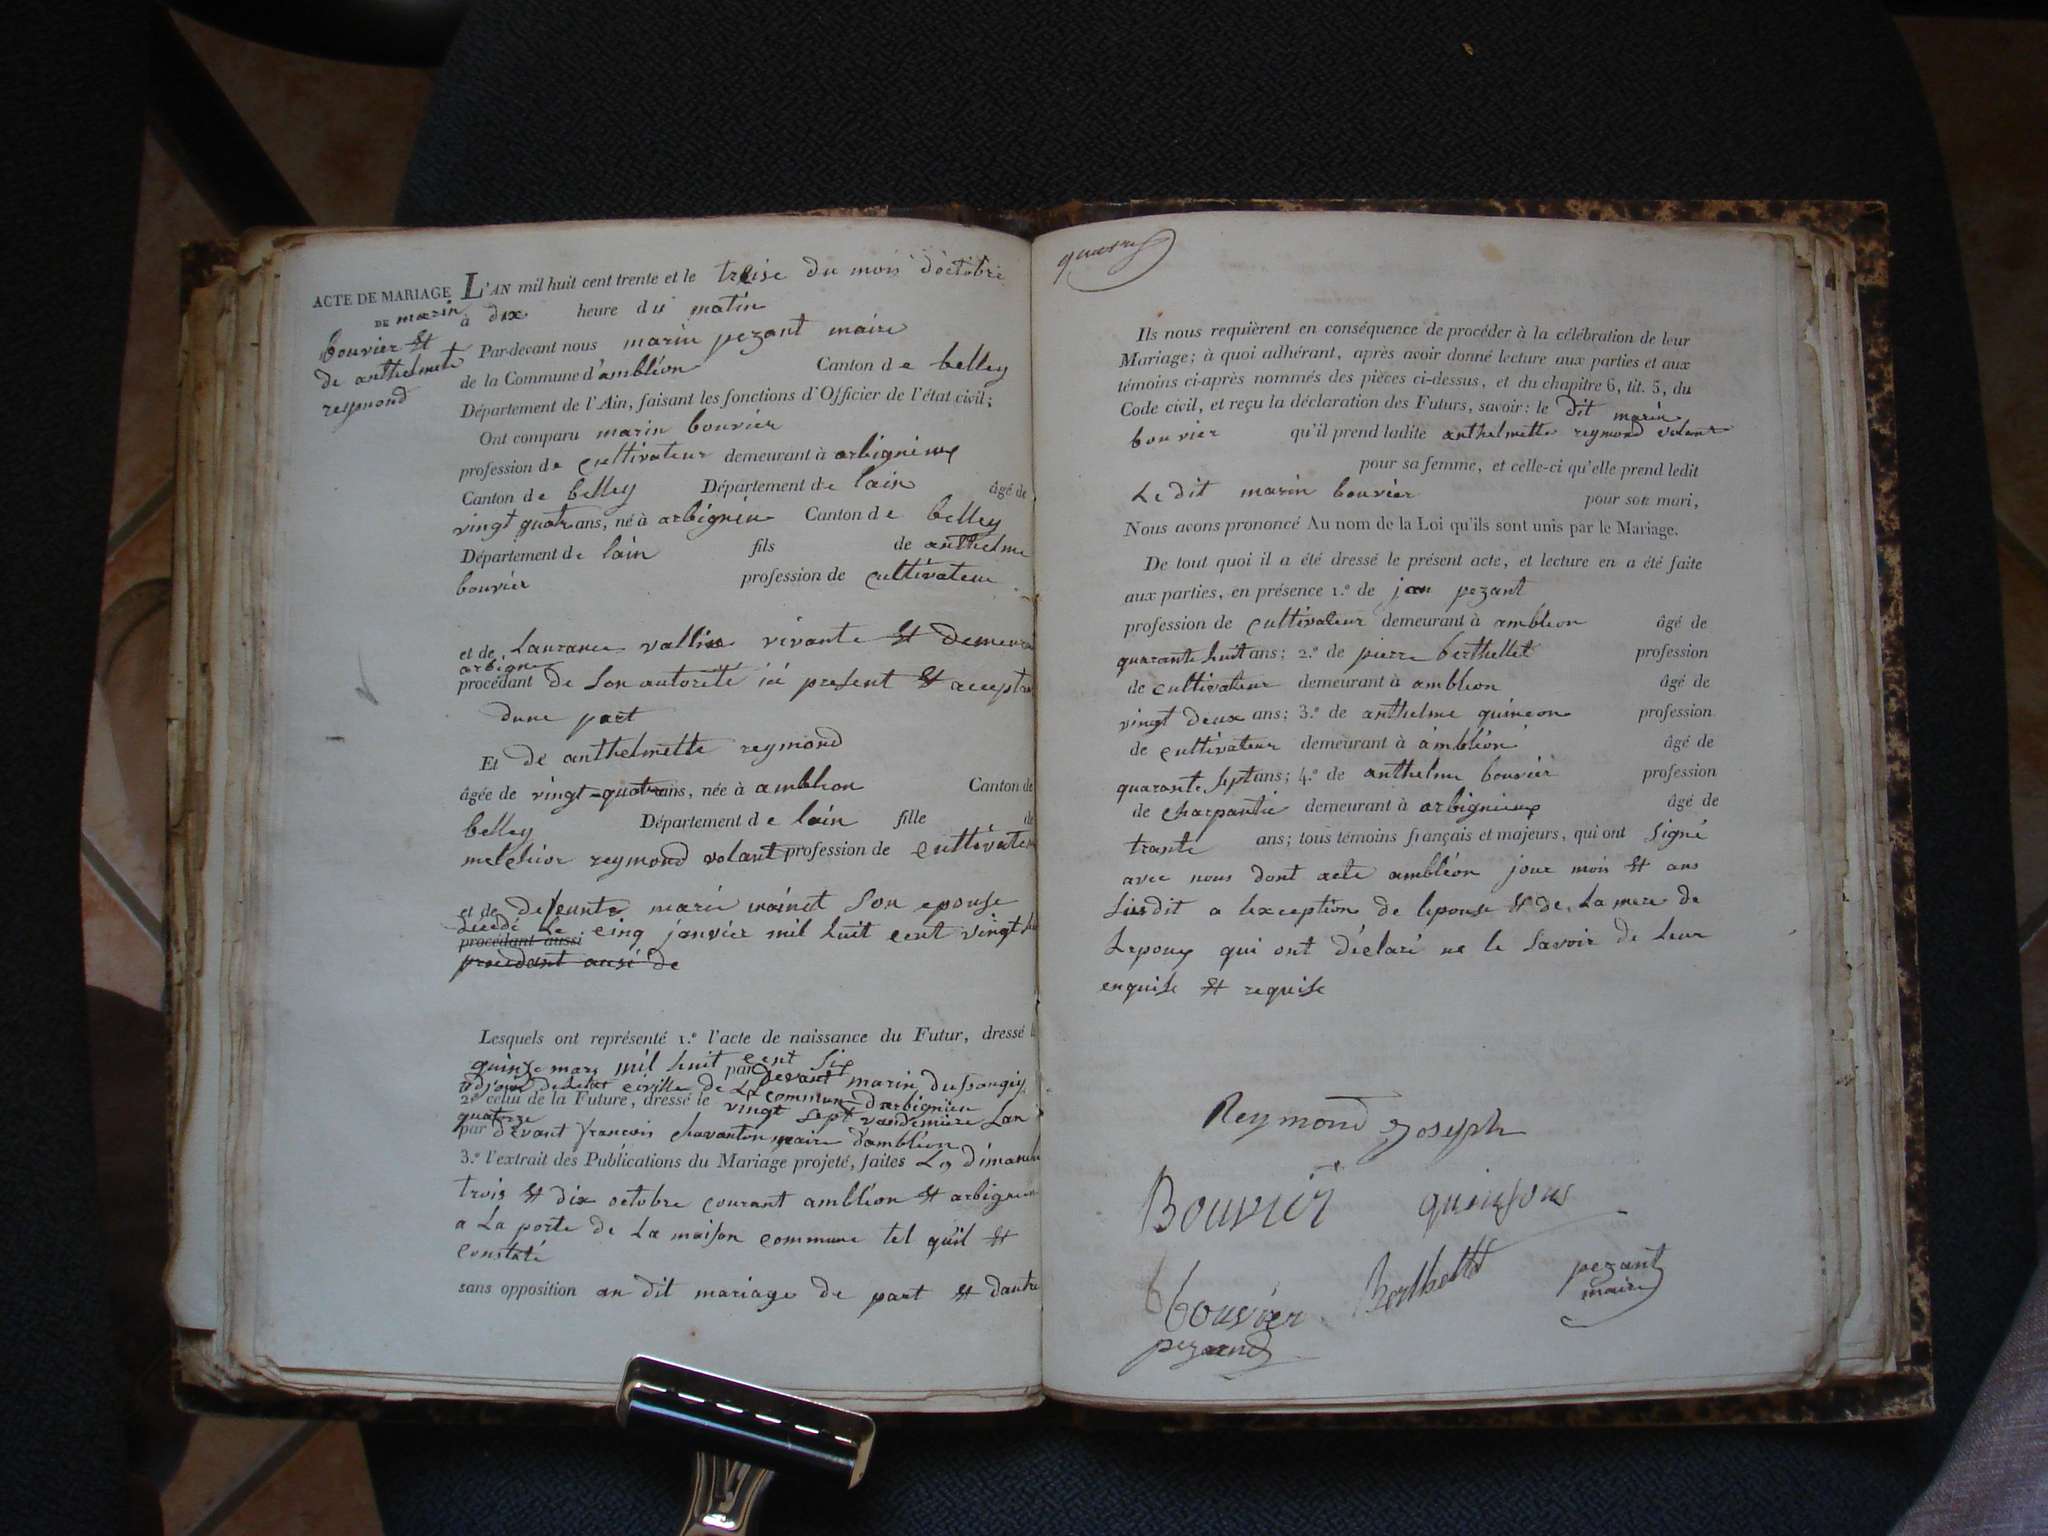 ACTE DE MARIAGE
DE marin
bouvier et
de anthelmette
reymond
L'AN mil huit cent trente et le treise du mois d'octobre
à dix heure du matin
Par-devant nous marin pezant maire
de la Commune d'ambléon Canton de belley
Département de l'Ain, faisant les fonctions d'Officier de l'état civil;
Ont comparu marin bouvier
profession de cultivateur demeurant à arbignieux
Canton de belley Département de lain âgé de
vingt quatre ans, né à arbignieu Canton de belley
Département de lain fils de anthelme
bouvier profession de cultivateur
et de Laurance vallin vivante et demeurant
arbigneu
procédant de son autorité ici present et acceptant
dune part
Et de anthelmette reymond
âgée de vingt-quatre ans, née à ambléon Canton de
belley Département de lain fille de
melchior reymond volant profession de cultivateur
et de defeunte marie son epouse
decedé le cinq janvier mil huit cent vingt
procédant aussi
procedant ausi de
Lesquels ont représenté 1.º l'acte de naissance du Futur, dressé le
quinze mars mil huit cent six
par devant marin dufrongis
de letat civille de La commune d'arbignieu
2.º celui de la Future, dressé le vingt sept vandemiere Lan
quatorze
par devant francois chavanton maire d'ambléon
3.º l'extrait des Publications du Mariage projeté, faites Les dimanche
trois et dix octobre courant ambléon et arbignieu
a La porte de La maison commune tel qu'il et
constaté
sans opposition au dit mariage de part et dautre
quatre
Ils nous requièrent en conséquence de procéder à la célébration de leur
Mariage; à quoi adhérant, après avoir donné lecture aux parties et aux
témoins ci-après nommés des pièces ci-dessus, et du chapitre 6, tit. 5, du
Code civil, et reçu la déclaration des Futurs, savoir: le dit marin
bouvier qu'il prend ladite anthelmette reymond volant
pour sa femme, et celle-ci qu'elle prend ledit
Le dit marin bouvier pour son mari,
Nous avons prononcé Au nom de la Loi qu'ils sont unis par le Mariage.
De tout quoi il a été dressé le présent acte, et lecture en a été faite
aux parties, en présence 1.º de jean pezant
profession de cultivateur demeurant à ambléon âgé de
quarante huit ans; 2.º de pierre berthellet profession
de cultivateur demeurant à ambléon âgé de
vingt deux ans; 3.º de anthelme quinson profession
de cultivateur demeurant à ambléon âgé de
quarante sept ans; 4.º de anthelme bouvier profession
de charpantié demeurant à arbignieux âgé de
trante ans; tous témoins français et majeurs, qui ont signé
avec nous dont acte ambléon jour mois et ans
susdit a lexception de lepouse et de La mere de
Lepoux qui ont déclaré ne le savoir de Leur
enquise et requise
Reymond Joseph
Bouvier quinson
bouvier Berthellet pezant
maire
pezand